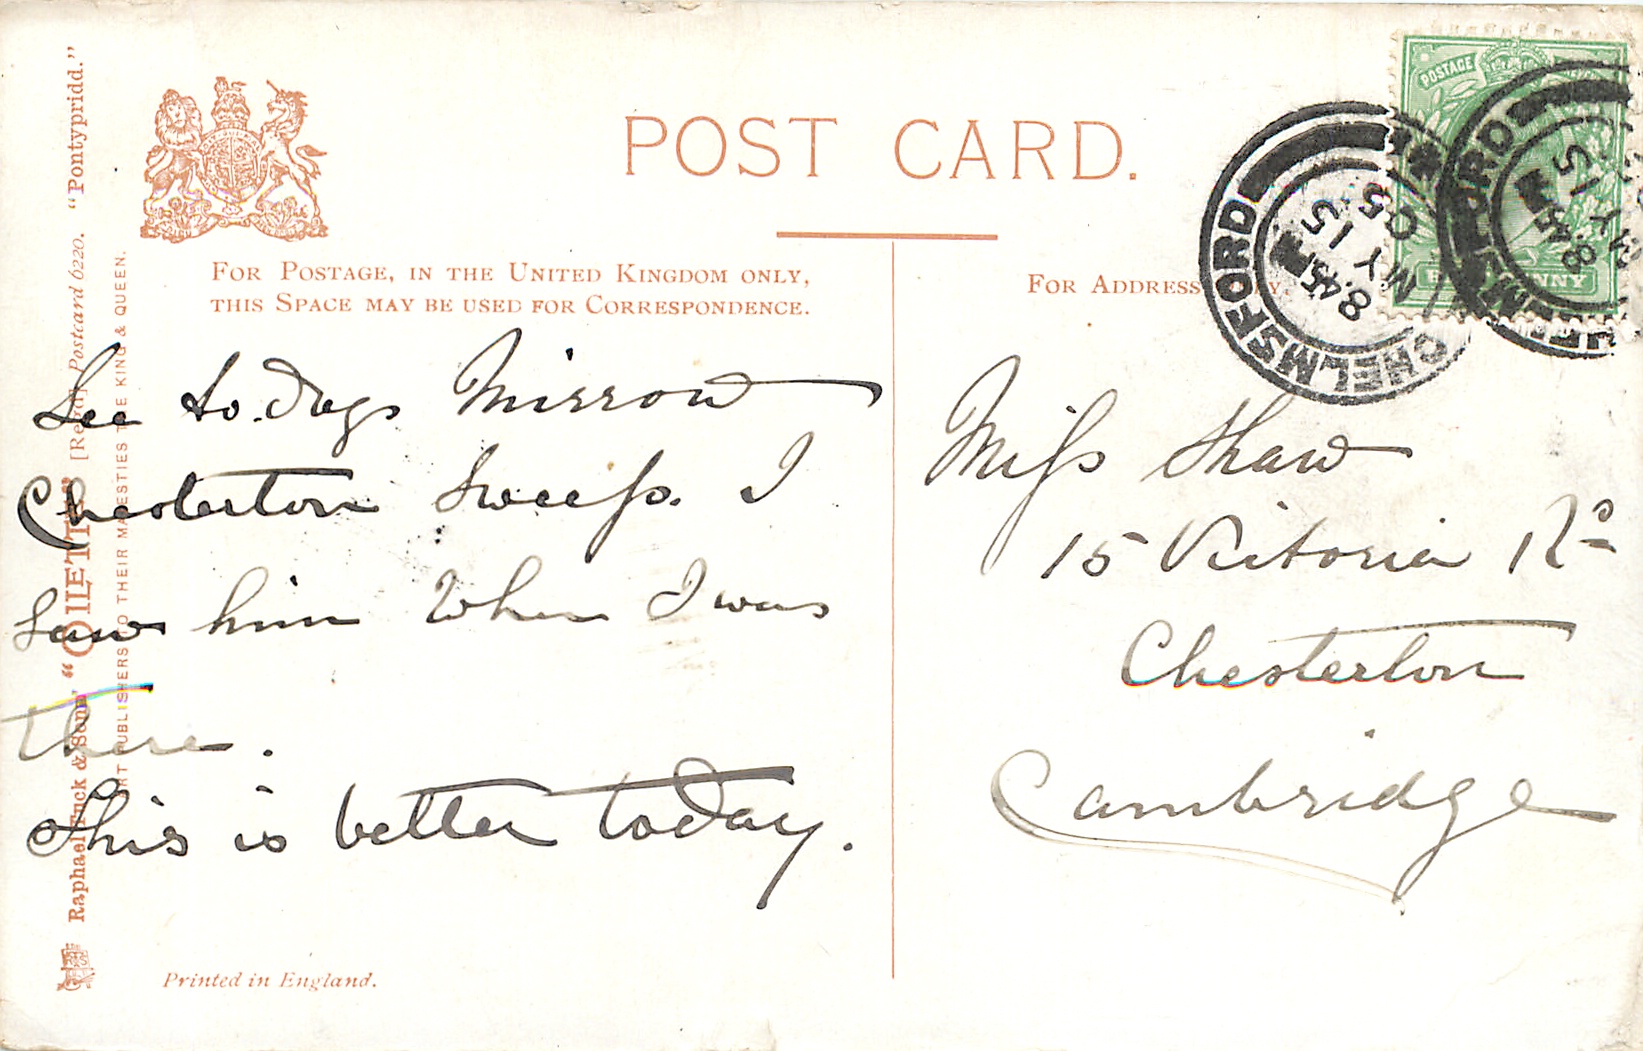 POST CARD.
FOR POSTAGE, IN THE UNITED KINGDOM ONLY,
THIS SPACE MAY BE USED FOR CORRESPONDENCE.
FOR ADDRESS
POSTAGE
CHELMSFORD
8.45 PM
MY 15
05
8.45 PM
MY 15
See to.days Mirror
Chesterton Sweep. I
Saw him when I was
there.
This is better today.
Miss Shaw
15 Victoria Rd
Chesterton
Cambridge
Raphael Tuck & Sons' "OILETTE" [Regd] Postcard 6220. "Pontypridd."
ART PUBLISHERS TO THEIR MAJESTIES THE KING & QUEEN.
Printed in England.